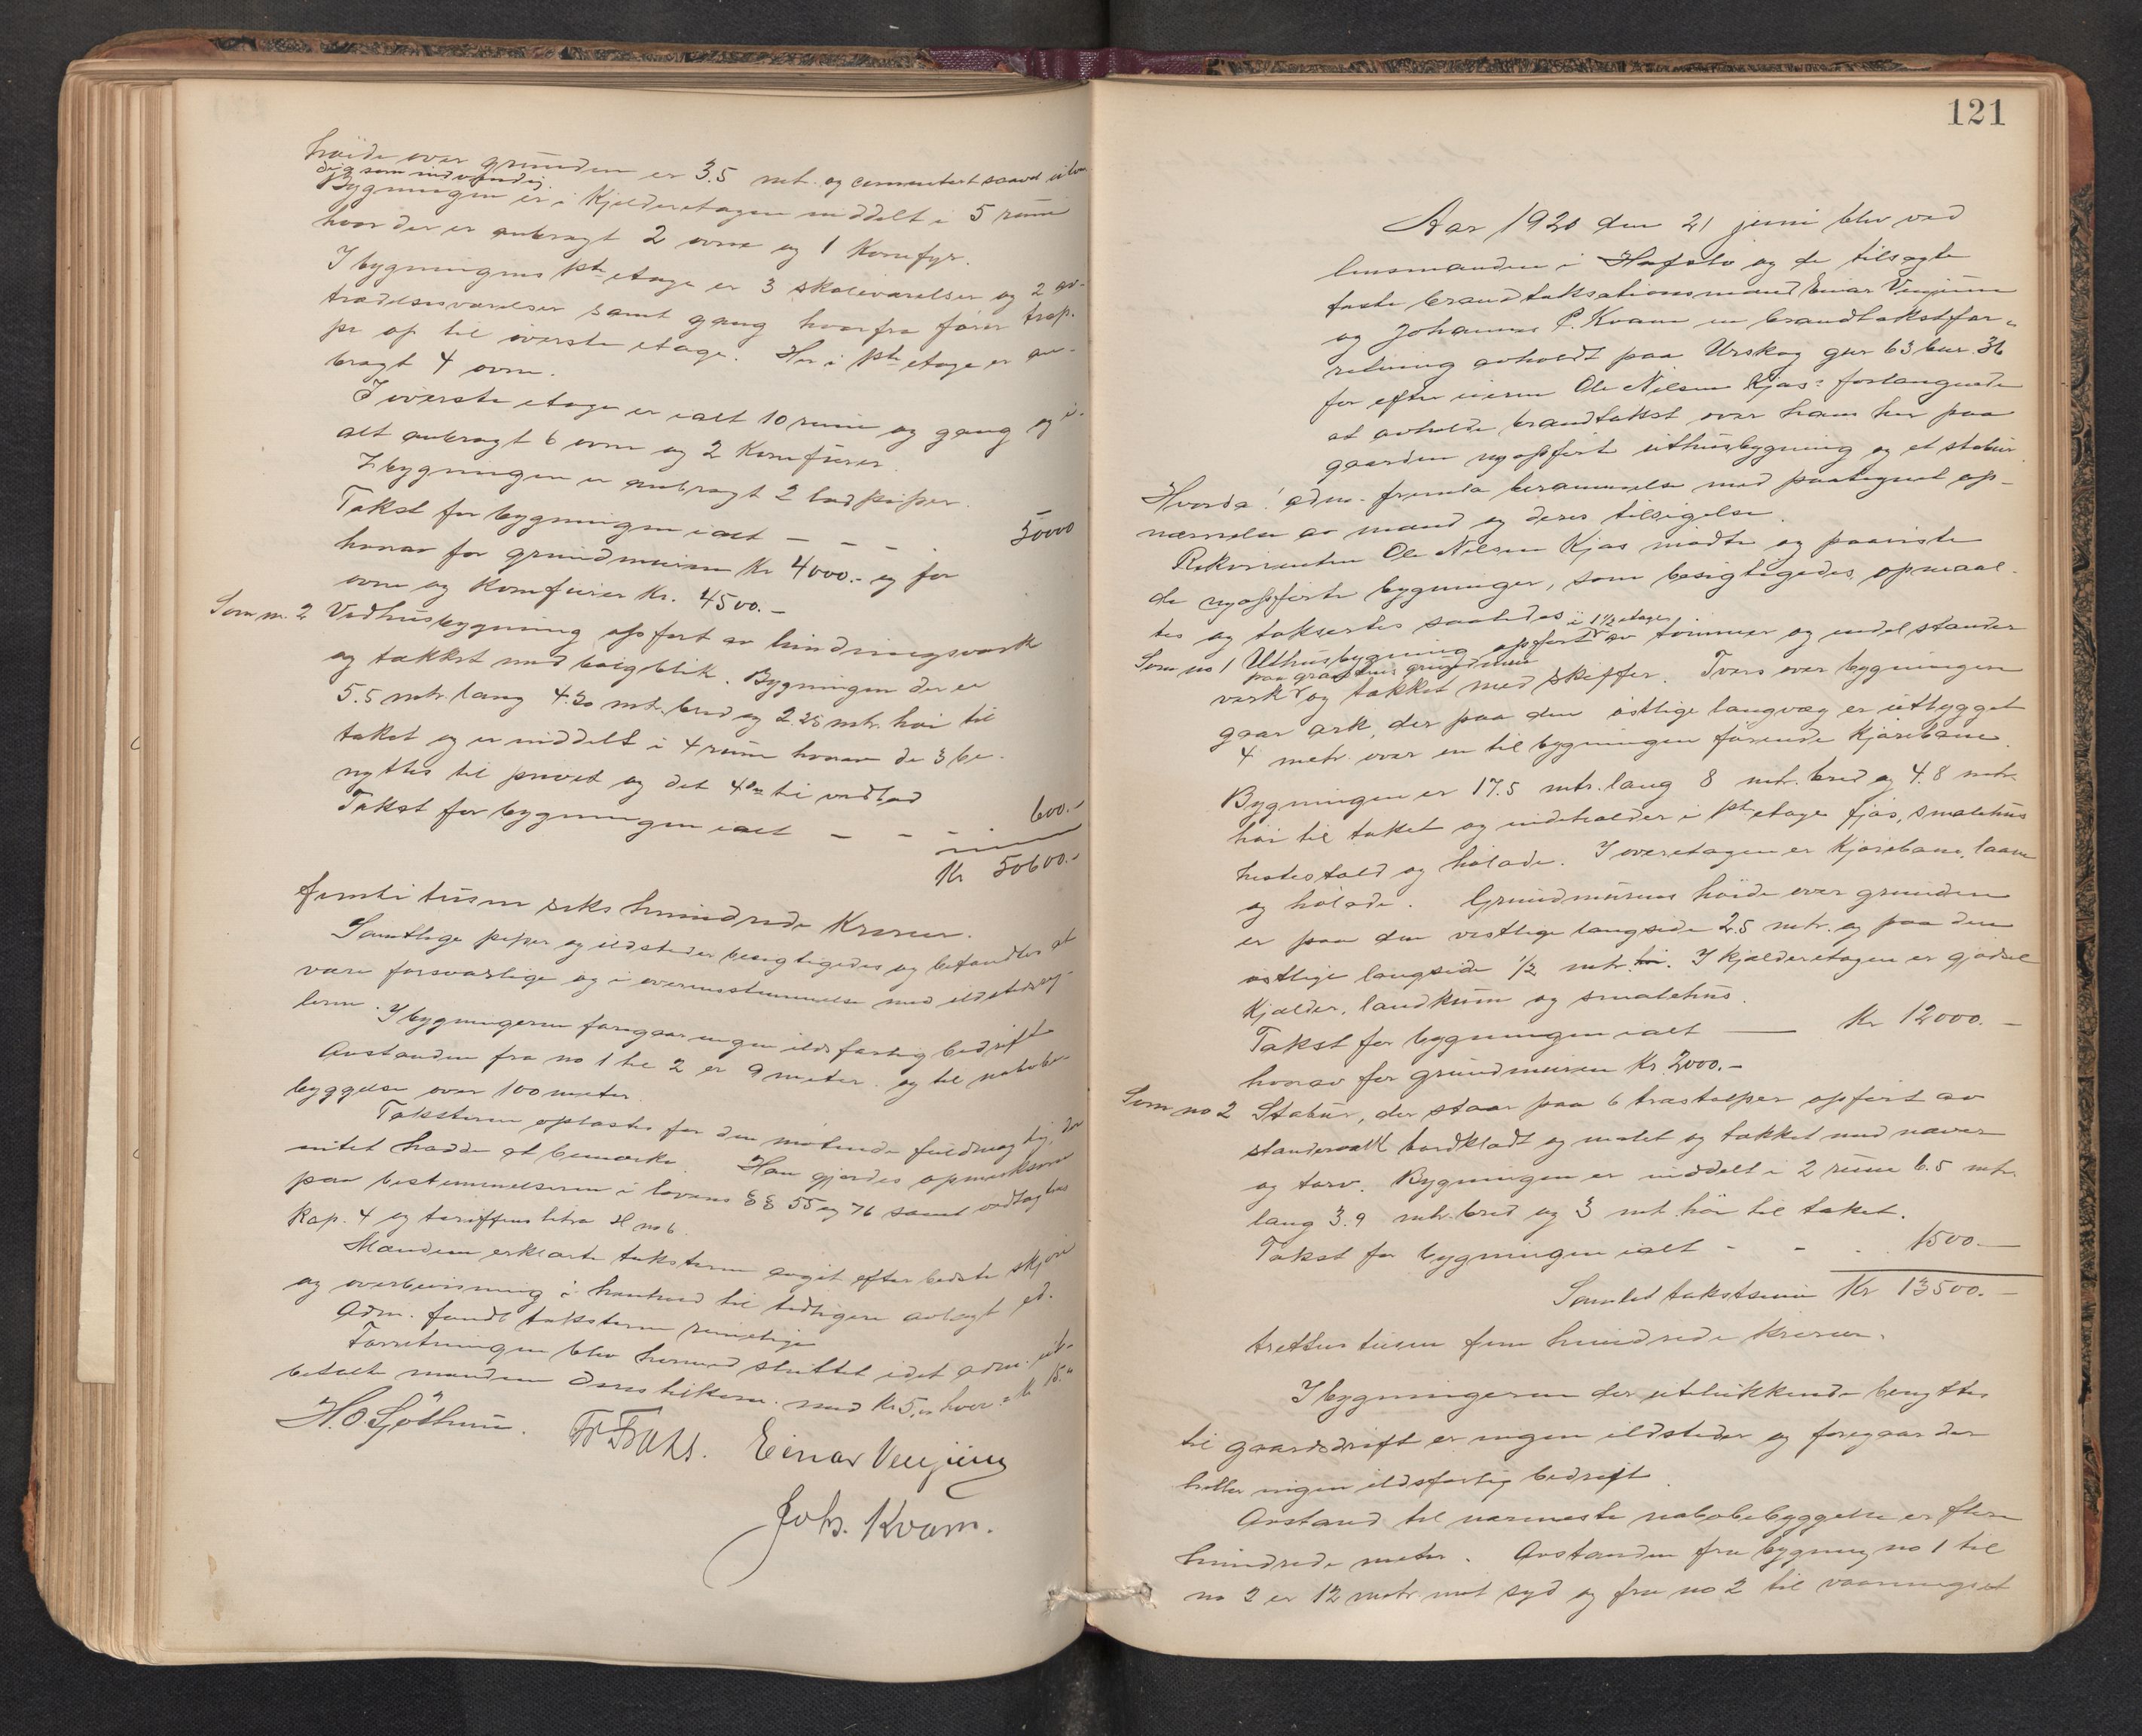 høide over grunden er 3.5 mtr. og cementert saavel utven
dig som indvendig.
Bygningen er i Kjelderetagen inddelt i 5 rum
hvor der er anbragt 2 ovne og 1 Komfyr.
I bygningens 1ste etage er 3 skoleværelser og 2 av-
trædelsesværelser samt gang hvorfra fører trap-
pe op til øverste etage. Her i 1ste etage er an-
bragt 4 ovne.
I øverste etage er ialt 10 rum og gang og i-
alt anbragt 6 ovne og 2 Komfurer.
I bygningen er anbragt 2 piper.
Takst for bygningen ialt - - - . 50000
hvorav for grundmuren Kr 4000.- og for
ovne og Komfurer Kr. 4500.-
Som nr. 2 Vedhusbygning opført av bindingsverk
og tækket med bølgblik. Bygningen der er
5.5 mtr. lang 4.20 mtr. bred og 2.25 mtr. høi til
taket og er inddelt i 4 rum hvorav de 3 be-
nyttes til privet og det 4de til vedlad
Takst for bygningen ialt - - - . 600.-
Kr 50600.-
femti tusen seks hundrede Kroner.
Samtlige piper og ildsteder besigtigedes og befandtes at
være forsvarlige og i overensstemmelse med ildstedsreg-
lerne. I bygningerne foregaar ingen ildsfarlig bedrift
Avstanden fra no 1 til 2 er 9 meter og til nabobe-
byggelse over 100 meter.
Taksterne oplæstes for den møtende fuldmægtig, der
intet hadde at bemerke. Han gjordes opmerksom
paa bestemmelserne i lovens §§ 55 og 76 samt vedtægtens
Kap. 4 og tariffens litra H no 6.
Mændene erklærte taksterne avgit efter bedste skjøn
og overbevisning i henhold til tidligere avlagt ed.
Adm. fandt taksterne rimelige
Forretningen blev hermed sluttet idet adm. ut-
betalte mændene deres tilkom. med Kr 5,- hver = Kr 15."
H. O. Sjøthun. Einar Venjum
Johs. Kvam.
121
Aar 1920 den 21 juni blev ved
lensmanden i Hafslo og de tilsagte
faste brandtaksationsmænd Einar Venjum
og Johannes P. Kvam en brandtakstfor-
retning avholdt paa Urskog gnr 63 bnr. 36
for efter eieren Ole Nilsen Kjøs' forlangende
at avholde brandtakst over hans her paa
gaarden nyopført uthusbygning og et stabur.
Hvorda: adm. fremla berammelse med paategnet op-
nævnelse av mænd og deres tilsigelse.
Rekvirenten Ole Nilsen Kjøs møtte og paaviste
de nyopførte bygninger, som besigtigedes, opmaal-
tes og taksertes saaledes
Som no 1 Uthusbygning opført i 1½ etager av tømmer og endel stander
verk paa graastens grundmur og tækket med skiffer. Tvers over bygningen
gaar ark, der paa den østlige langvæg er utbygget
4 metr. over en til bygningen førende Kjørebane.
Bygningen er 17.5 mtr. lang 8 mtr. bred og 4.8 mtr.
høi til taket og indeholder i 1ste etage fjøs, smalehus
hestestald og hølade. I overetagen er Kjørebane, laave
og hølade. Grundmurens høide over grunden
er paa den vestlige langside 2.5 mtr. og paa den
østlige langside ½ mtr. I kjælderetagen er gjødsel
Kjælder, landkum og smalehus.
Takst for bygningen ialt — Kr 12000.-
hvorav for grundmuren Kr 2000.-
Som no 2 Stabur, der staar paa 6 træstolper opført av
standerverk bordklædt og malet og tækket med næver
og torv. Bygningen er inddelt i 2 rum 6.5 mtr.
lang 3.9 mtr. bred og 3 mtr. høi til taket.
Takst for bygningen ialt - - . 1500.-
Samlet takstsum Kr 13500.-
tretten tusen fem hundrede Kroner.
I bygningerne der utelukkende benyttes
til gaardsdrift er ingen ildsteder og foregaar der
heller ingen ildsfarlig bedrift.
Avstand til nærmeste nabobebyggelse er flere
hundrede meter. Avstanden fra bygning no 1 til
no 2 er 12 metr. mot syd og fra no 2 til vaaningshuset